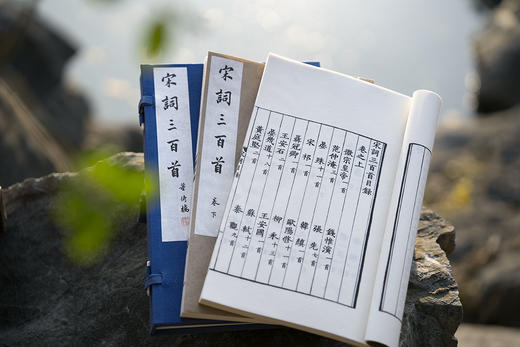 宋詞三百首
宋詞三百首
卷下
宋詞三百首目録
卷之上
徽宗皇帝一首 錢惟演一首
范仲淹三首 張先七首
晏殊十一首 韓縝一首
宋祁一首 歐陽
聶冠卿一首 柳永十三首
王安石二首 王安國一首
晏幾道 蘇軾十二首
黃庭堅二首 秦觀九首